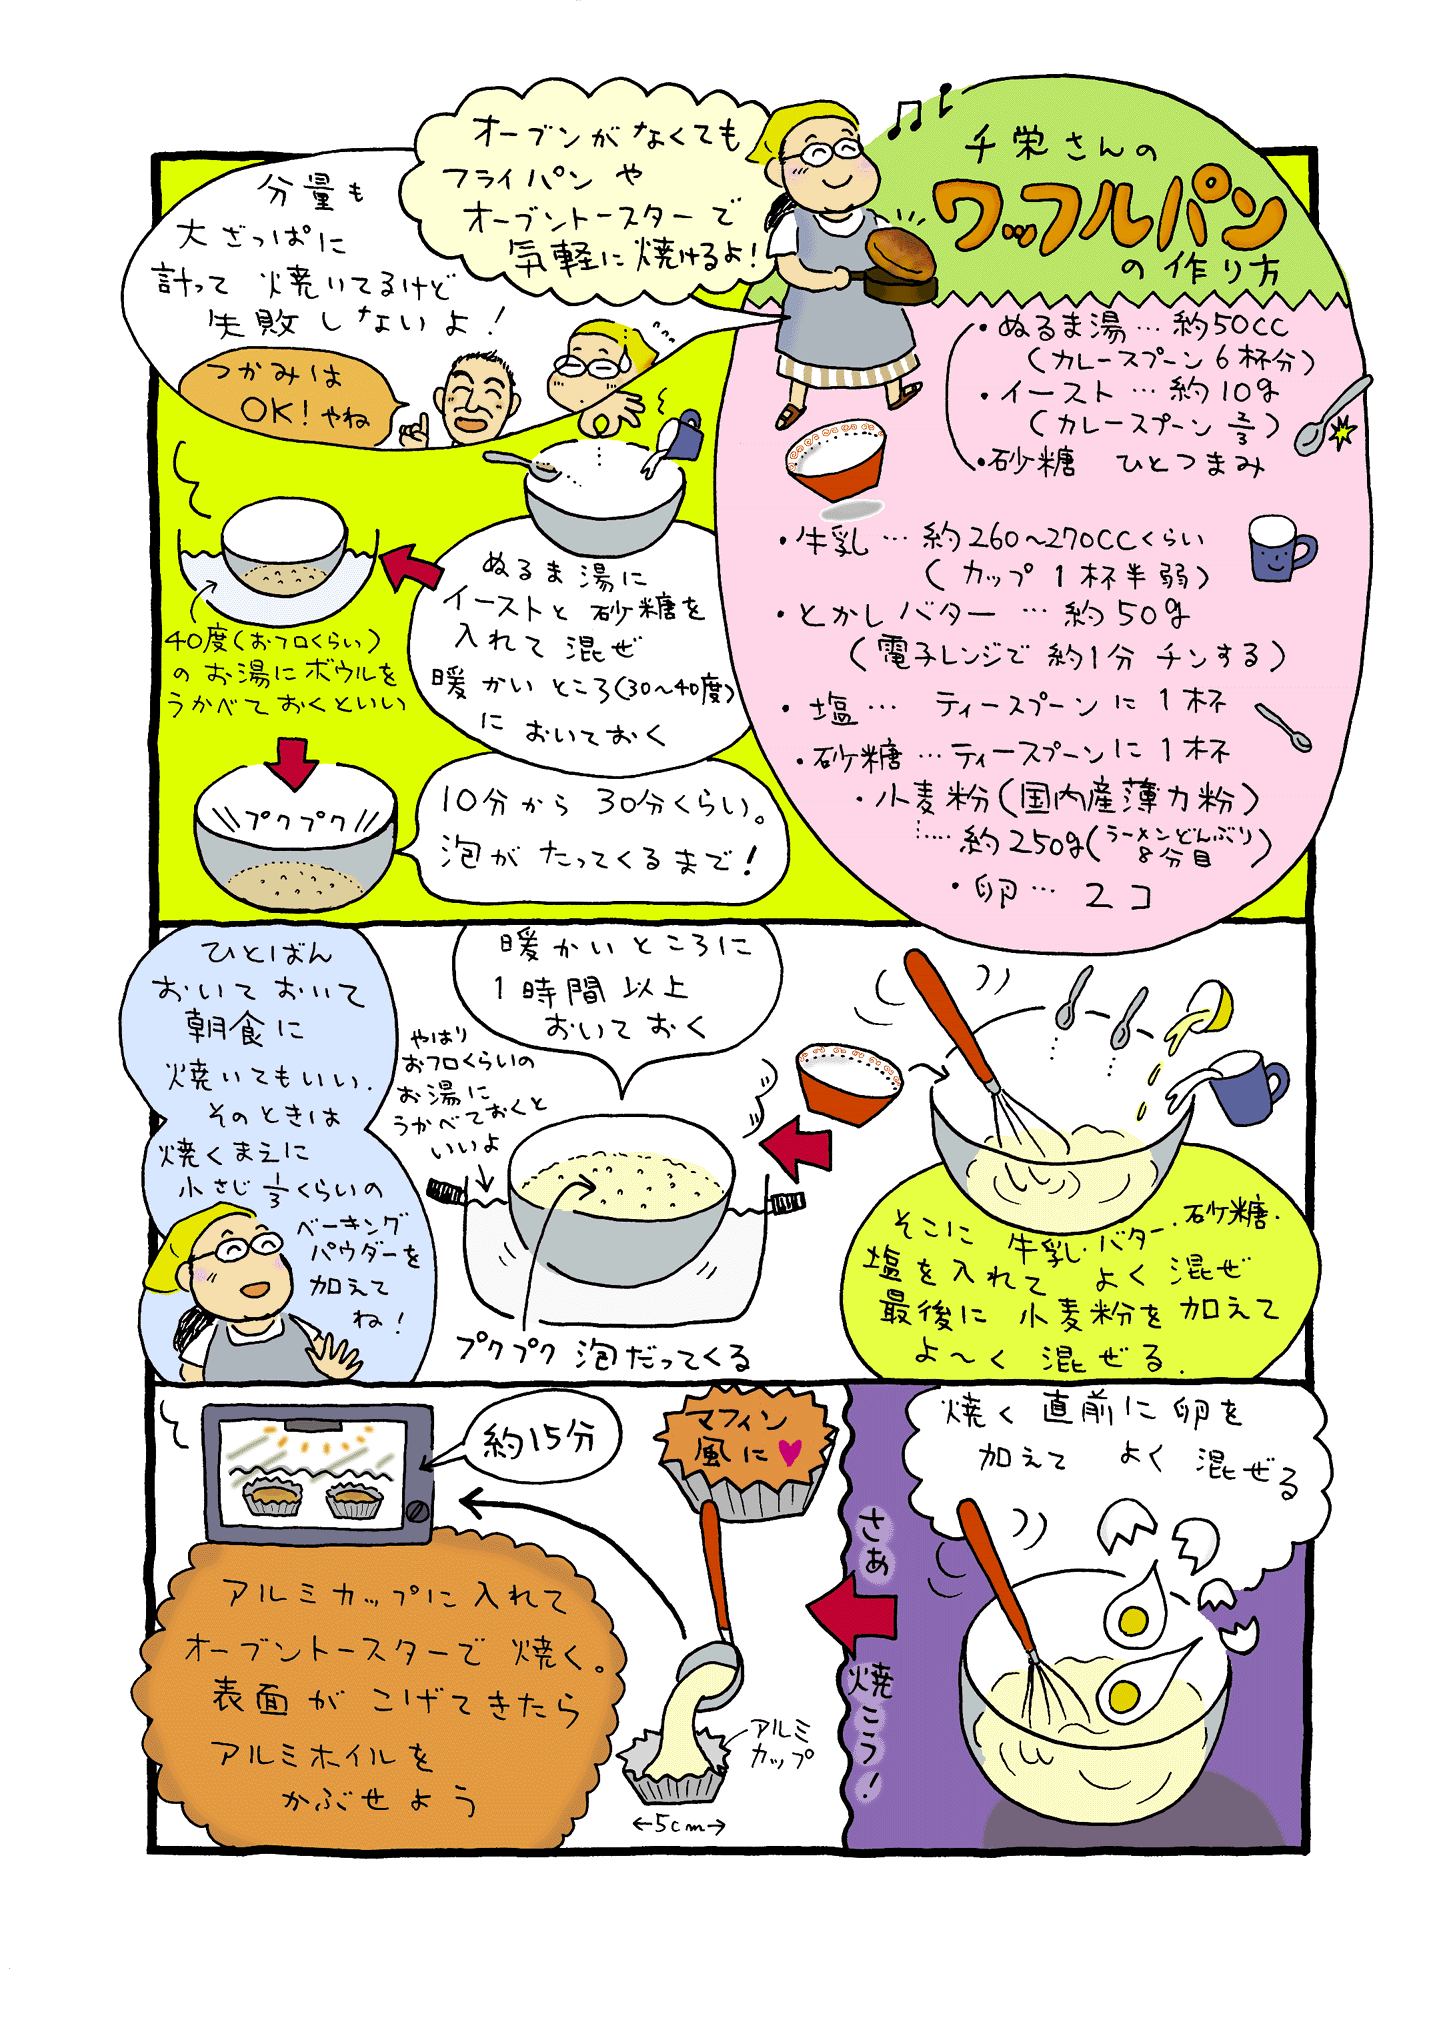 千栄さんの
ワッフルパン
の作り方
オーブンがなくても
フライパンや
オーブントースターで
気軽に焼けるよ!
分量も
大ざっぱに
計って焼いてるけど
失敗しないよ!
つかみは
OK!やね
・ぬるま湯…約50CC
(カレースプーン6杯分)
・イースト…約10g
(カレースプーン2/3)
・砂糖 ひとつまみ
・牛乳…約260~270CCくらい
(カップ1杯半弱)
・とかしバター…約50g
(電子レンジで約1分チンする)
・塩… ティースプーンに1杯
・砂糖…ティースプーンに1杯
・小麦粉(国内産薄力粉)
……約250g(ラーメンどんぶり
8分目)
・卵…2コ
ぬるま湯に
イーストと砂糖を
入れて混ぜ
暖かいところ(30~40度)
においておく
40度(おフロくらい)
のお湯にボウルを
うかべておくといい
プクプク
10分から30分くらい。
泡がたってくるまで!
そこに牛乳・バター・砂糖・
塩を入れてよく混ぜ
最後に小麦粉を加えて
よ~く混ぜる.
暖かいところに
1時間以上
おいておく
やはり
おフロくらいの
お湯に
うかべておくと
いいよ
プクプク泡だってくる
ひとばん
おいておいて
朝食に
焼いてもいい.
そのときは
焼くまえに
小さじ1/3くらいの
ベーキング
パウダーを
加えて
ね!
焼く直前に卵を
加えてよく混ぜる
さぁ
焼こう!
マフィン
風に♥
アルミ
カップ
←5cm→
約15分
アルミカップに入れて
オーブントースターで焼く。
表面がこげてきたら
アルミホイルを
かぶせよう